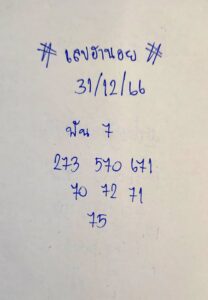 # เลขฮานอย #
31/12/66
พัน 7
273 570 671
70 72 71
75